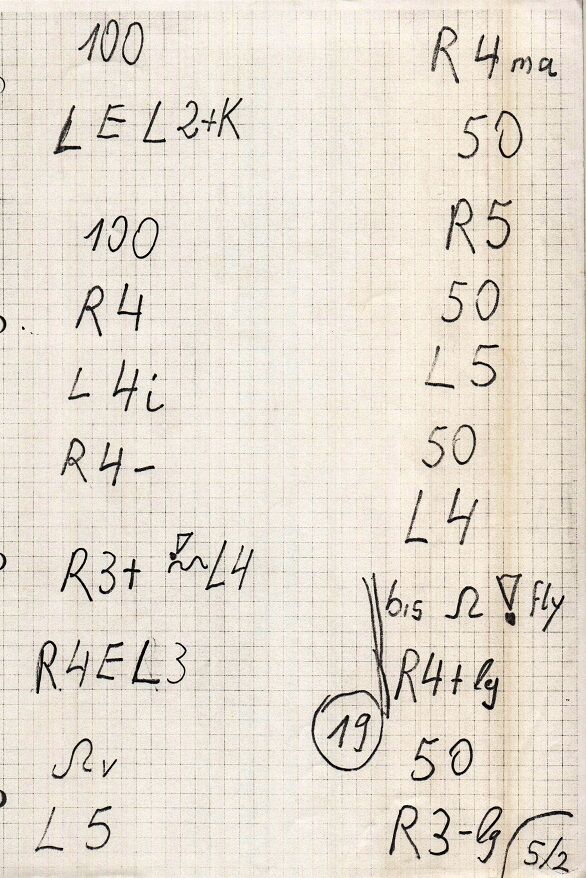 100
LEL2+K
100
R4
L4i
R4-
R3+ L4
R4EL3
Ωv
L5
R4ma
50
R5
50
L5
50
L4
bis Ω ! Fly
R4+lg
19
50
R3-lg
5/2